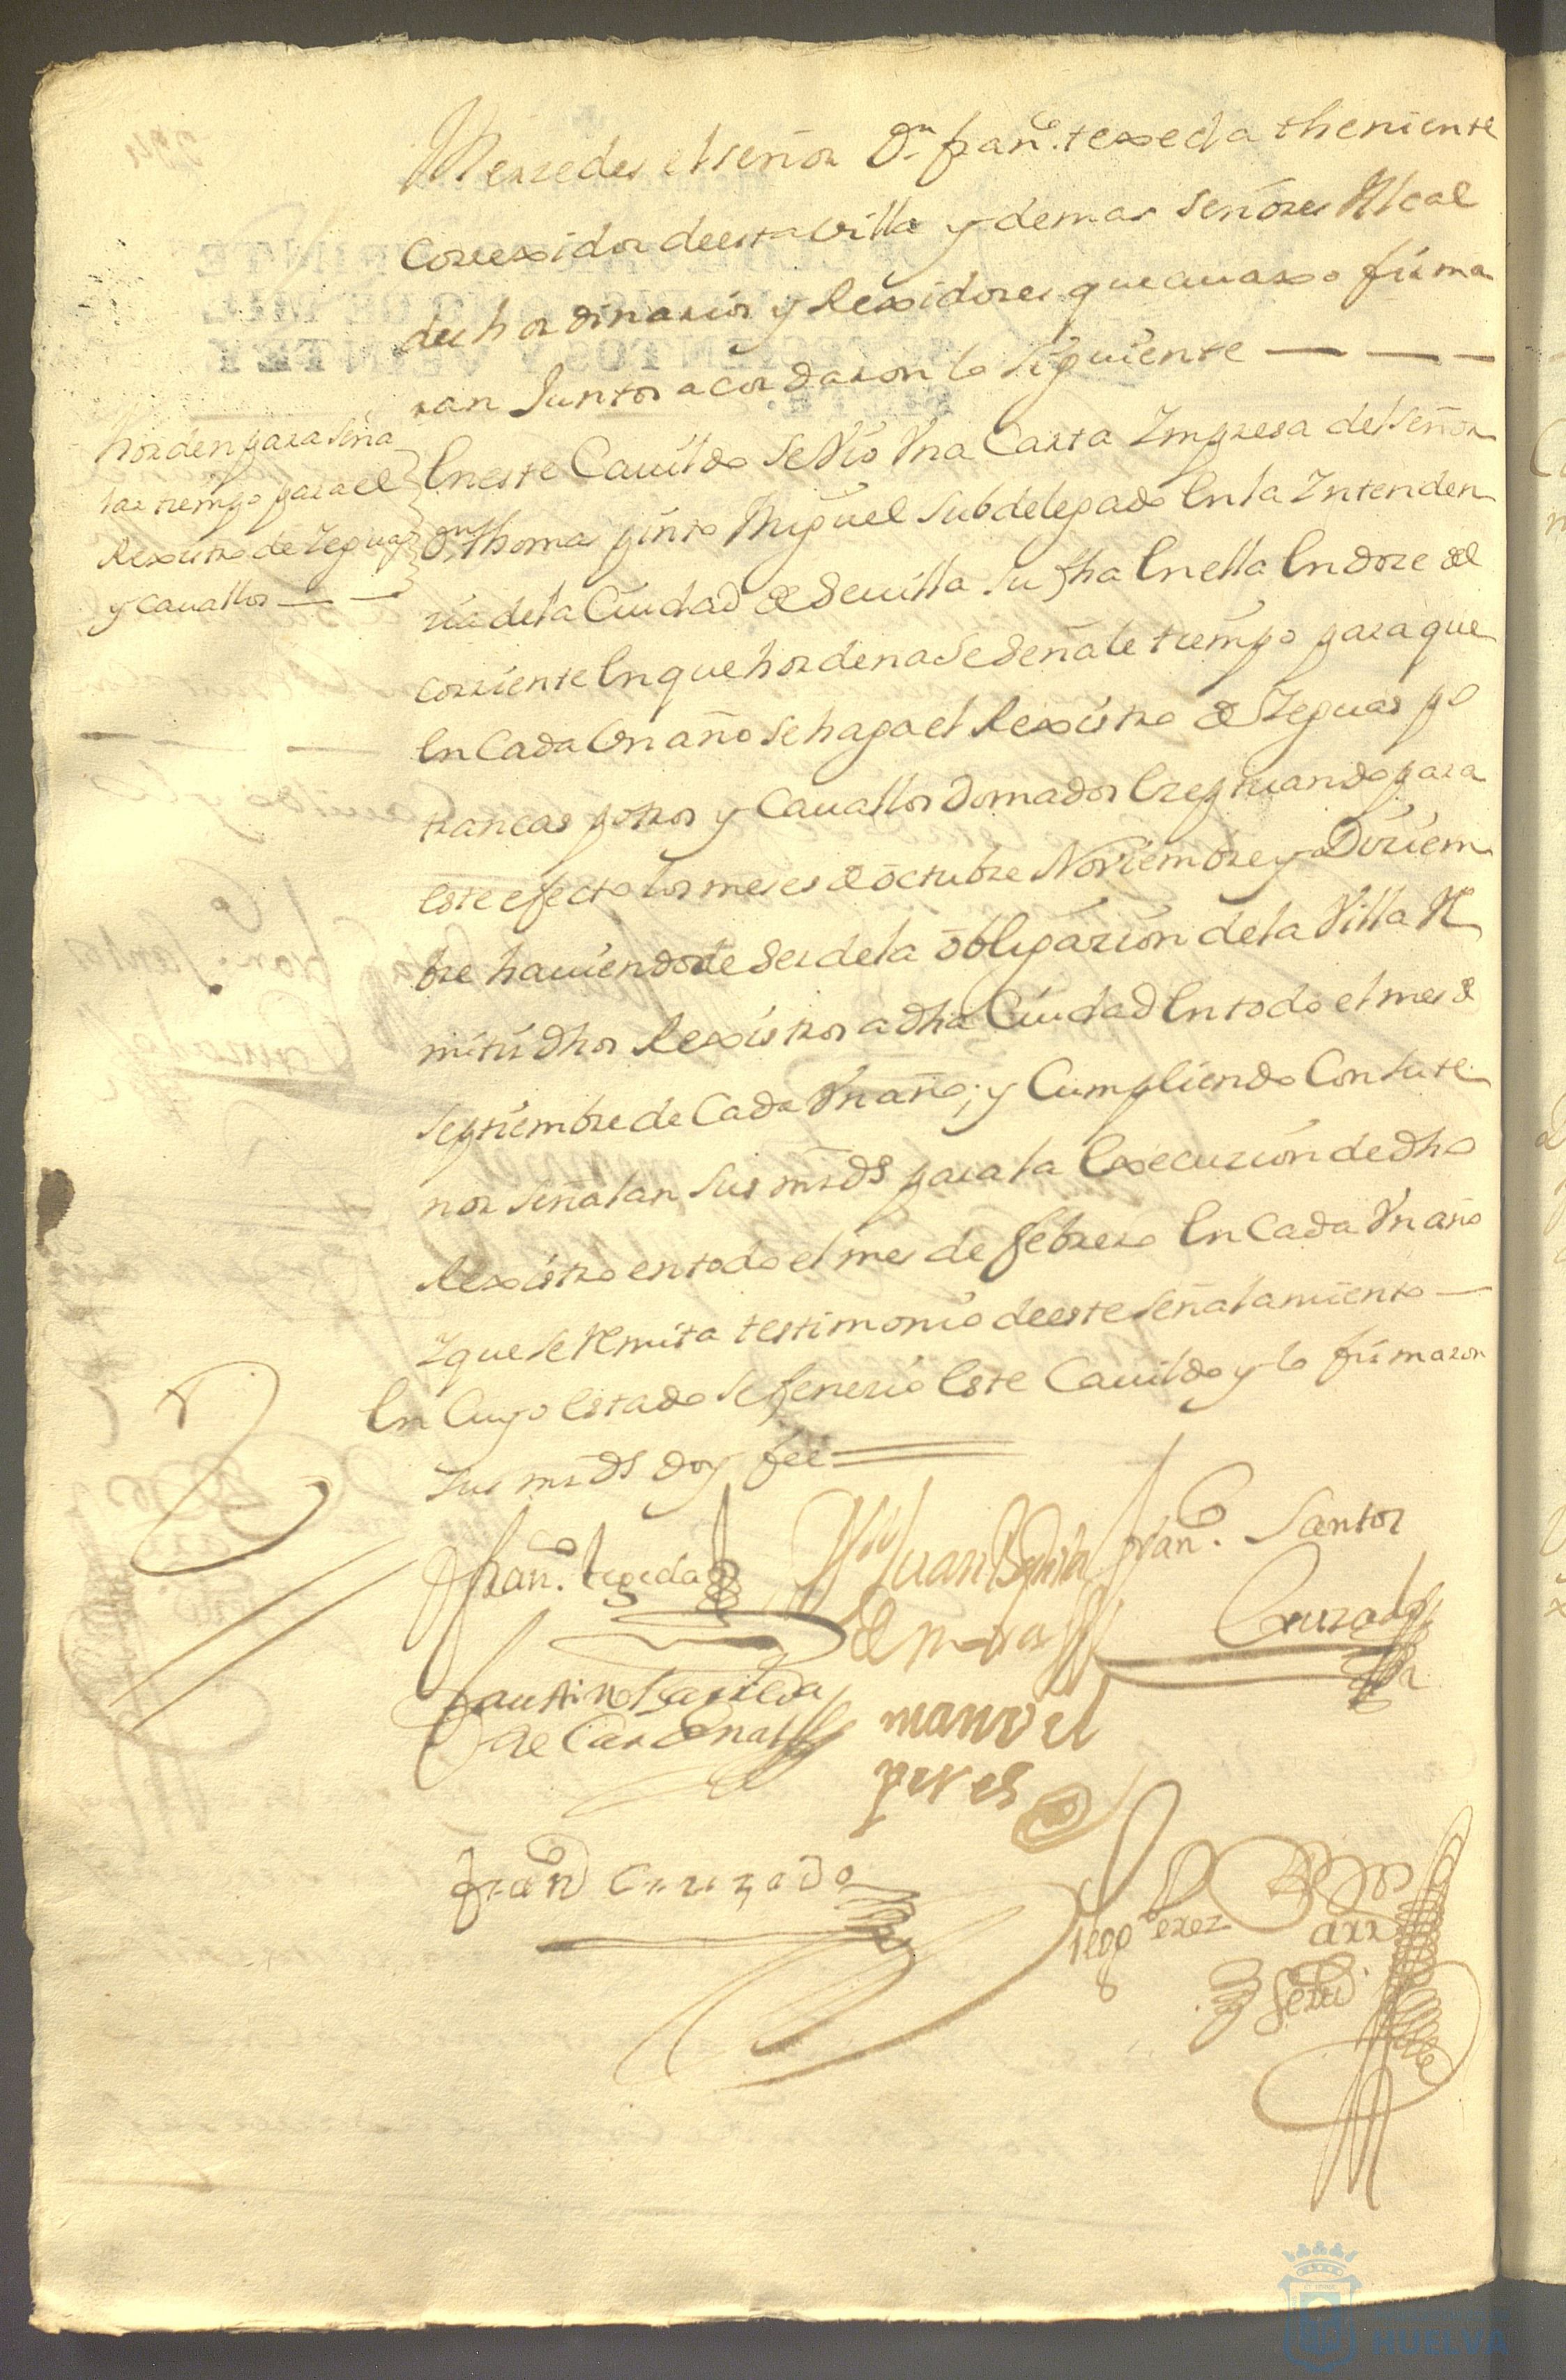 Merzedes el señor Dn. franco. texeda theniente
Correxidor deesta villa y demas señores Alcal
des hordinarios y Rexidores que auaxo firma
ran Juntos acordaron lo siguiente — — —
horden para seña
lar tiempo para el
Rexistro de Yeguas
y cauallos — —
En este Cauildo se Vio Vna Carta Impresa del Señor
Dn. Thomas pinto Miguel subdelegado En la Intenden
zia de la Ciudad de Seuilla su fha En ella En doze del
corriente En que hordena se señale tiempo para que
En Cada Vn año se haga el Rexistro de Yeguas po
trancas potros y Cauallos Domados Ezeptuando para
este efecto los meses de octubre Noviembre y Diziem
bre hauiendo de ser de la obligazion de la Villa Re
mitir dhos Rexistros a dha Ciudad En todo el mes de
septiembre de Cada Vn año; y Cumpliendo Con su te
nor señalan sus mrds para la Execuzion de dho
Rexistro en todo el mes de febrero En Cada Vn año
Y que se Remita testimonio deeste señalamiento —
En Cuyo estado se fenezio Este Cauildo y lo firmaron
sus mrds doy fee
Franco. tegeda
Juan
de
Franco. Santos
Cruzado
Faustino
de Cardenas
manvel
peres
Franco Cruzado
Diego Perez